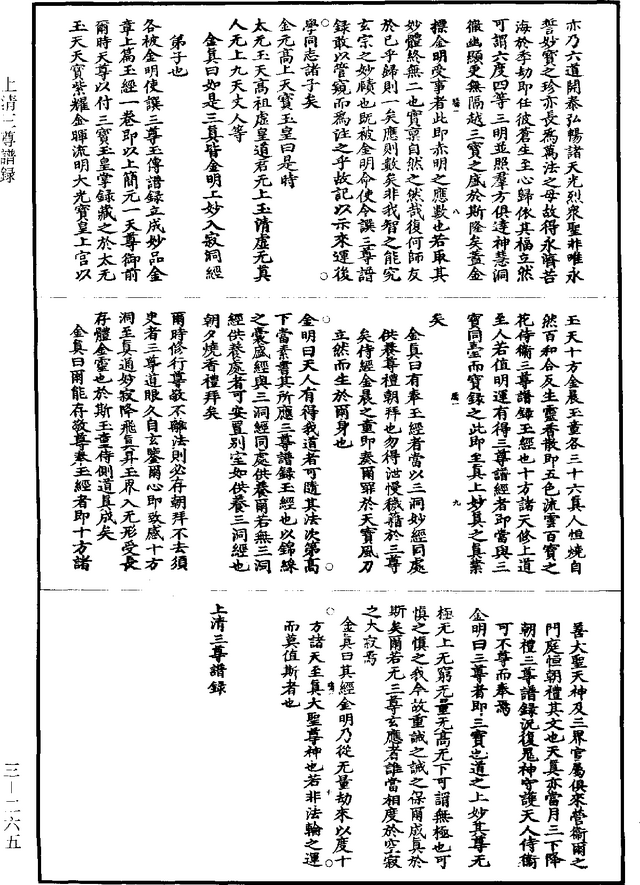 亦乃六道開泰弘暢諸天光烈衆聖非唯永
誓妙寶之珍亦長為萬法之母故得永濟苦
海於季劫即任彼蒼生至心歸依其福立然
可謂六度四等三明並照羣方俱達神慧洞
徹幽顯更無隔越三寶之盛於斯隆矣蓋金
摽金明受事者此即赤明之應數也若取其
妙體終無二也寶亰自然之然哉復何師友
於已乎歸則一矣應則數矣非我智之能究
玄宗之妙賾也既被金明命使令譔三尊譜
録敢以管窺而為註之乎故記以示來運後
學同志諸子矣
金元高上天寶玉皇曰是時
太元玉天高祖虛皇道君元上玉清虛无真
人无上九天丈人等
金真曰如是三真皆金明上妙入寂洞經
弟子也
各被金明使譔三尊玉傳譜録立成妙品金
章上篇玉經一卷即以上簡元一天尊御前
爾時天尊以付三寶玉皇掌録藏之於太无
玉天天寶紫耀金暉流明大光寶皇上宮以
玉天十方金晨玉童各三十六真人恒燒自
然百和合反生靈香散即五色流雲百寶之
花侍衛三尊譜録玉經也十方諸天修上道
至人若值明運有得三尊譜經者即當與三
寶同臺而寶録之此即至真上妙真之真業
矣
金真曰有奉玉經者當以三洞妙經同處
供養尊禮朝拜也勿得泄慢穢籍於三尊
矣侍經金晨之童即奏爾罪於天寶風刀
立然而生於爾身也
金明曰天人有得我道者可隨其法次第高
下當素書其所應三尊譜録玉經也以錦緣
之囊盛經與三洞經同處供養爾若無三洞
經供養處者可安置别室如供養三洞經也
朝夕燒香禮拜矣
爾時修行尊敬不離法則必存朝拜不去須
㬰者三尊道眼久自玄鑒爾心即致感十方
洞至真通妙寂降飛貟昇玉界入无形受長
存體金靈也於斯玉童侍側道真成矣
金真曰爾能存敬尊奉玉經者即十方諸
善大聖天神及三界官屬俱來營衛爾之
門庭恒朝禮其文也天真亦當月三下降
朝禮三尊譜録況復鬼神守護天人侍衛
可不尊而奉焉
金明曰三尊者即三寶也道之上妙其尊无
極无上无窮无量无高无下可謂無極也可
慎之慎之我今故重誠之誡之保爾成真於
斯矣爾若无三尊玄應者誰當相度於空寂
之大寂焉
金真曰其經金明乃從无量劫來以度十
方諸天至真大聖尊神也若非法輪之運
而莫值斯者也
上清三尊譜録
上清三尊譜録
三—二六五